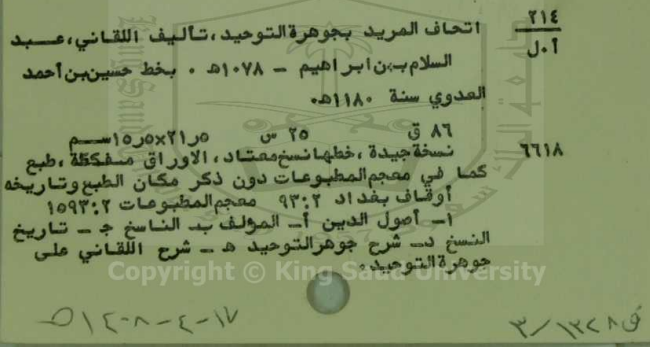 ٢١٤
أ٠ل
اتحاف المريد بجوهرة التوحيد، تأليف اللقاني، عبد
السلام بن ابراهيم - ١٠٧٨هـ ٠ بخط حسين بن أحمد
العدوي سنة ١١٨٠هـ٠
٨٦ ق ٢٥ س ٢١٫٥×١٥٫٥سم
٦٦١٨ نسخة جيدة، خطها نسخ معتاد، الاوراق مفككة، طبع
كما في معجم المطبوعات دون ذكر مكان الطبع وتاريخه
أوقاف بغداد ٩٣:٢ معجم المطبوعات ١٥٩٣:٢
١- أصول الدين أ- المؤلف ب- الناسخ ج- تاريخ
النسخ د- شرح جوهر التوحيد هـ- شرح اللقاني على
جوهرة التوحيد٠
Copyright © King Saud University
ف ١٣٢٨/٣
١٧-٤-١٤٠٨هـ